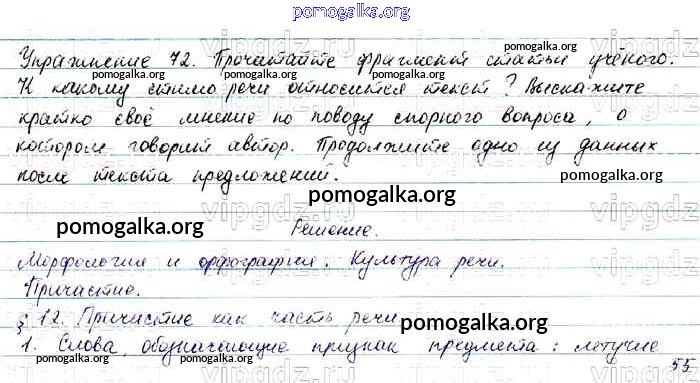 pomogalka.org
Упражнение 72. Прочитайте фрагмент статьи учёного.
pomogalka.org pomogalka.org
К какому стилю речи относится текст? Выскажите
кратко своё мнение по поводу спорного вопроса, о
pomogalka.org
котором говорит автор. Продолжите одно из данных
после текста предложений.
pomogalka.org
pomogalka.org
Решение.
pomogalka.org
Морфология и орфография. Культура речи.
Причастие.
§ 12. Причастие как часть речи
pomogalka.org
1. Слова, обозначающие признак предмета: летучие
pomogalka.org
55